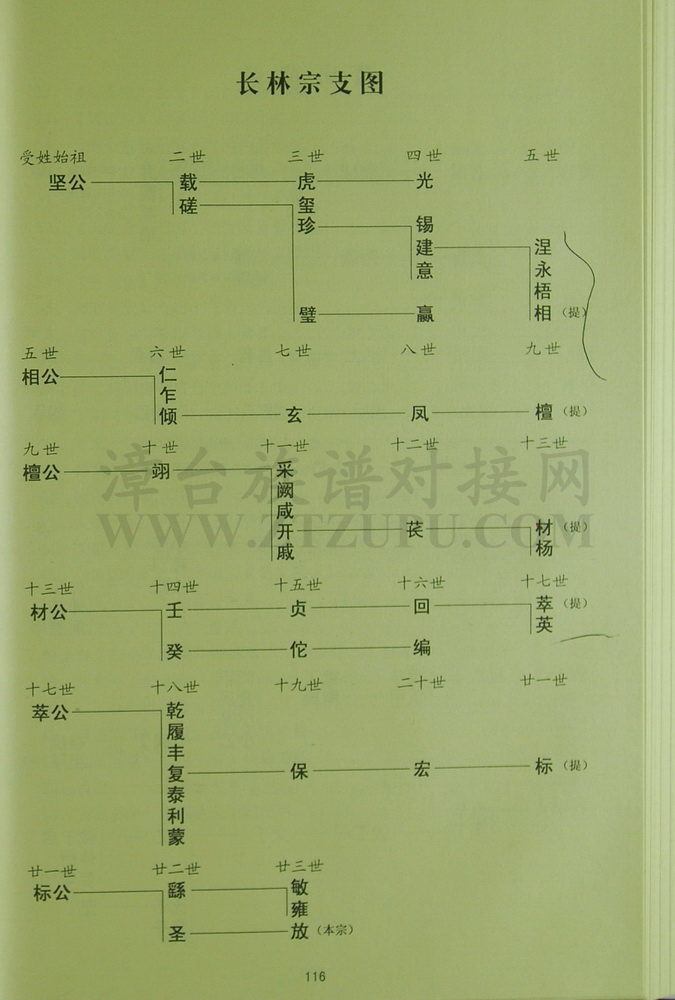 长林宗支图
受姓始祖 二世 三世 四世 五世
坚公 载 虎 光
磋 玺
珍 锡
建 涅
意 永
梧
璧 赢 相（提）
五世 六世 七世 八世 九世
相公 仁
乍
倾 玄 凤 檀（提）
九世 十世 十一世 十二世 十三世
檀公 翊 采
阙
咸
开 苌 材（提）
戚 杨
漳台族谱对接网
WWW.ZTZUPU.COM
十三世 十四世 十五世 十六世 十七世
材公 壬 贞 回 萃（提）
英
癸 佗 编
十七世 十八世 十九世 二十世 廿一世
萃公 乾
履
丰
复 保 宏 标（提）
泰
利
蒙
廿一世 廿二世 廿三世
标公 繇 敏
雍
圣 放（本宗）
116